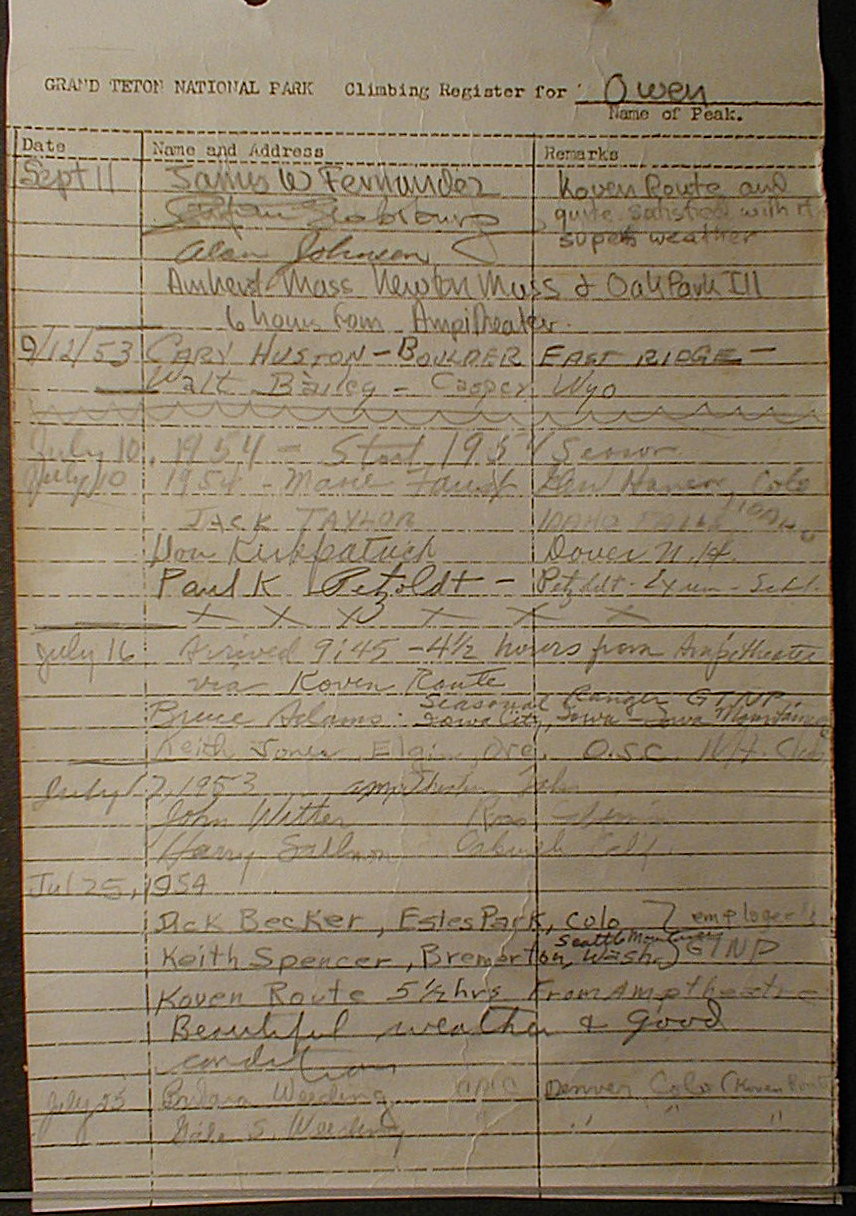 GRAND TETON NATIONAL PARK Climbing Register for Owen
Name of Peak.
Date Name and Address Remarks
Sept 11 James W Fernandez Koven Route and
quite satisfied with it
Alan Johnson super weather
Amherst Mass Newton Mass & Oak Park Ill
6 hours from Ampitheater.
9/12/53 CARY HUSTON - BOULDER EAST RIDGE -
Walt Bailey - Casper, Wyo
July 10, 1954 - Start 1954 Season
July 10 1954 - Colo
JACK TAYLOR IDAHO FALLS, IDAHO
Don Kirkpatrick Dover N.H.
Paul K Petzoldt - Petzoldt - Exum - Schl.
X X X X X X
July 16 Arrived 9:45 - 4½ hours from Ampetheater
via Koven Route
Seasonal Ranger GTNP.
Bruce Adams: Iowa City, Iowa - Iowa Mountaineers
Keith Jones, Elgin, Ore. O.S.C. Mt. Club
July 17, 1953
John
Harry Calif.
Jul 25, 1954
Dick Becker, Estes Park, Colo } employee's
Seattle Mountaineers
Keith Spencer, Bremerton, Wash. } GTNP
Koven Route 5½ hrs From Amptheatre
Beautiful weather & good
condition
July 25 CMC Denver Colo (Koven Route
" " "